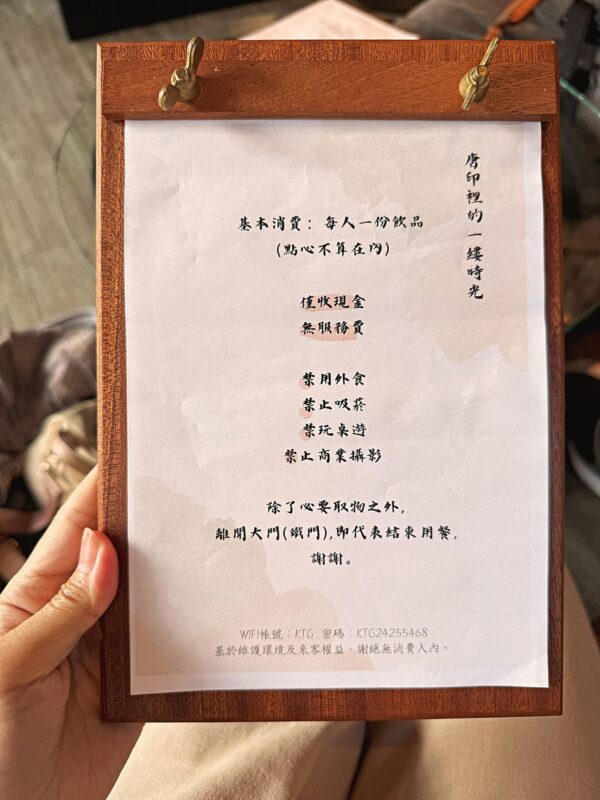 唐印裡的一縷時光
基本消費：每人一份飲品
(點心不算在內)
僅收現金
無服務費
禁用外食
禁止吸菸
禁玩桌遊
禁止商業攝影
除了必要取物之外,
離開大門(鐵門),即代表結束用餐,
謝謝。
WIFI帳號：KTG 密碼：KTG24255468
基於維護環境及來客權益，謝絕無消費入內。